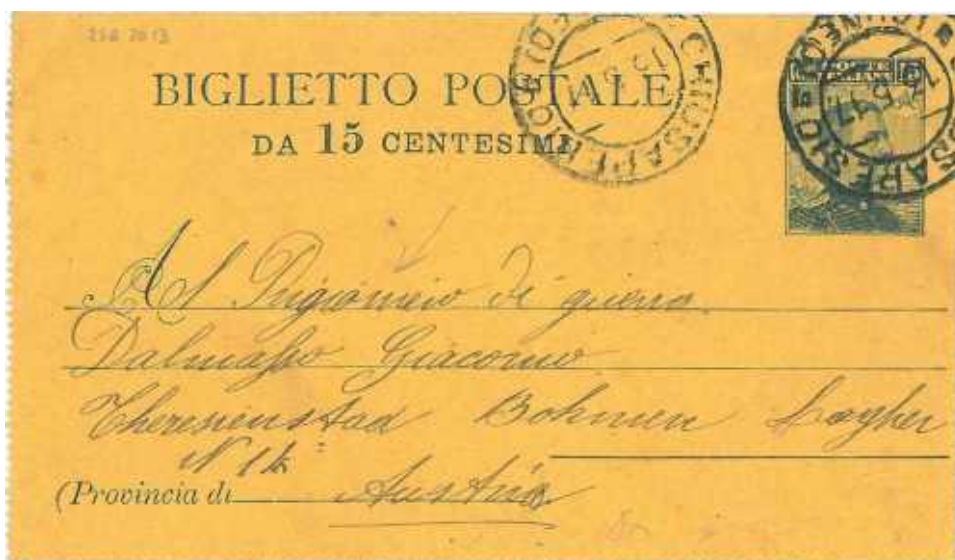 BIGLIETTO POSTALE
DA 15 CENTESIMI
Al Prigioniero di guerra
Dalmasso Giacomo
Theresienstad Bohmen Lagher
N
(Provincia di Austria